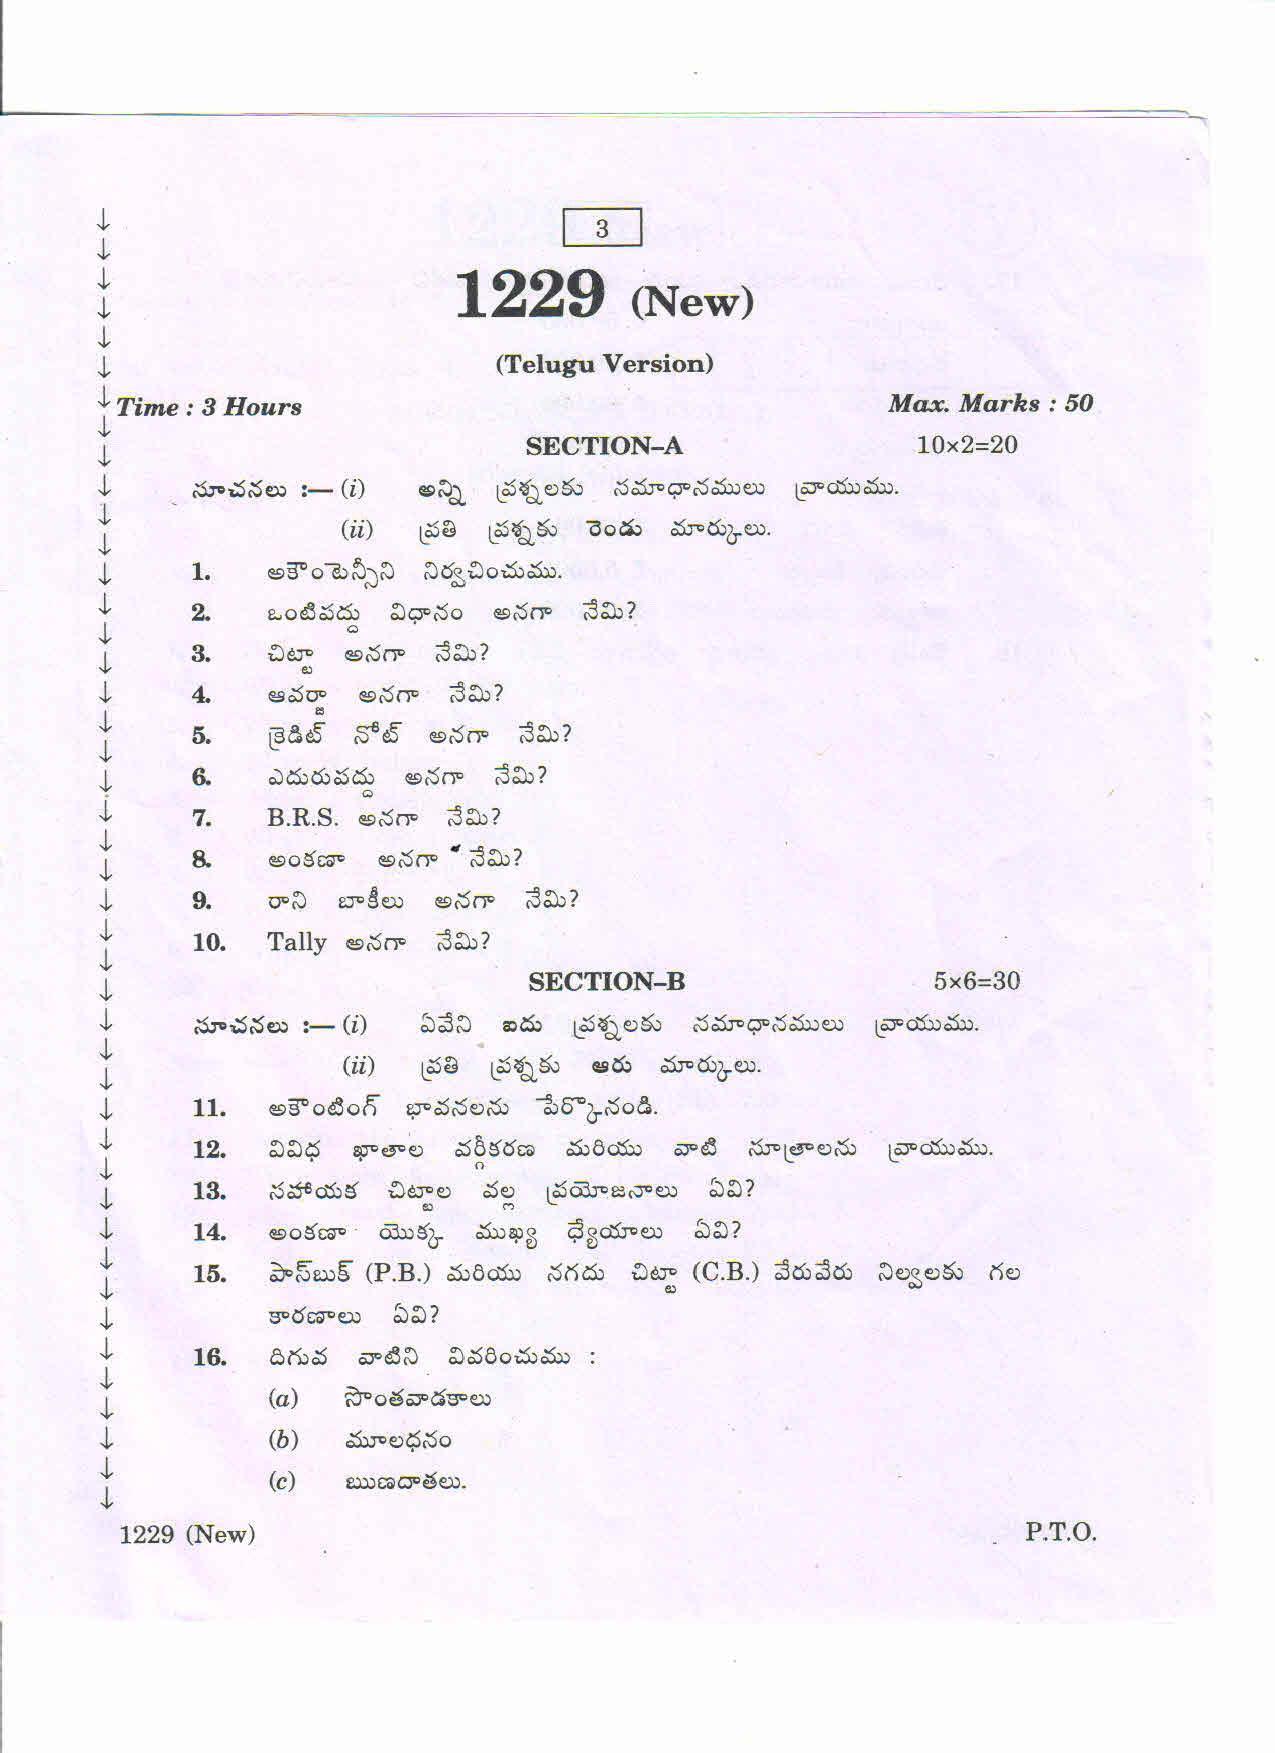 3
1229 (New)
(Telugu Version)
Time : 3 Hours Max. Marks : 50
SECTION–A 10×2=20
సూచనలు :— (i) అన్ని ప్రశ్నలకు సమాధానములు వ్రాయుము.
(ii) ప్రతి ప్రశ్నకు రెండు మార్కులు.
1. అకౌంటెన్సీని నిర్వచించుము.
2. ఒంటిపద్దు విధానం అనగా నేమి?
3. చిట్టా అనగా నేమి?
4. ఆవర్జా అనగా నేమి?
5. క్రెడిట్ నోట్ అనగా నేమి?
6. ఎదురుపద్దు అనగా నేమి?
7. B.R.S. అనగా నేమి?
8. అంకణా అనగా నేమి?
9. రాని బాకీలు అనగా నేమి?
10. Tally అనగా నేమి?
SECTION–B 5×6=30
సూచనలు :— (i) ఏవేని ఐదు ప్రశ్నలకు సమాధానములు వ్రాయుము.
(ii) ప్రతి ప్రశ్నకు ఆరు మార్కులు.
11. అకౌంటింగ్ భావనలను పేర్కొనండి.
12. వివిధ ఖాతాల వర్గీకరణ మరియు వాటి సూత్రాలను వ్రాయుము.
13. సహాయక చిట్టాల వల్ల ప్రయోజనాలు ఏవి?
14. అంకణా యొక్క ముఖ్య ధ్యేయాలు ఏవి?
15. పాస్‌బుక్ (P.B.) మరియు నగదు చిట్టా (C.B.) వేరువేరు నిల్వలకు గల
కారణాలు ఏవి?
16. దిగువ వాటిని వివరించుము :
(a) సొంతవాడకాలు
(b) మూలధనం
(c) ఋణదాతలు.
1229 (New) P.T.O.